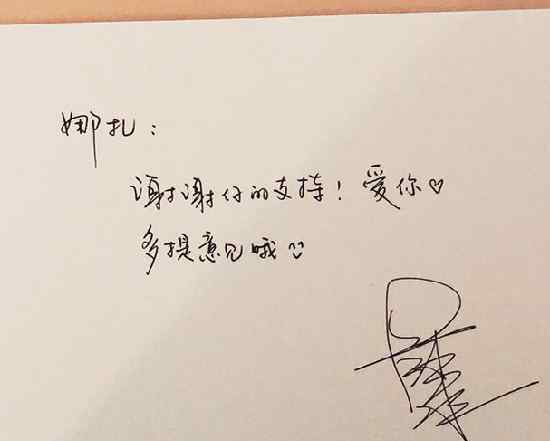 娜扎：
谢谢你的支持！爱你♡
多提意见哦